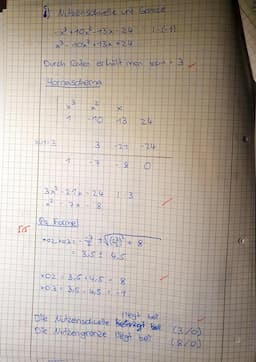 Nutzenschwelle und Grenze
-x³+10x²-13x-24 | (-1)
x³-10x²+13x+24
Durch Raten erhält man x01 = 3
Hornerschema
x³ x² x
1 -10 13 24
x01=3 3 -21 -24
1 -7 -8 0
3x²-21x-24 | :3
x²-7x-8
PQ Formel
5/5
= 3,5 ± 4,5
x02 = 3,5+4,5 = 8
x03 = 3,5-4,5 = -1
liegt bei
Die Nutzenschwelle bei (3/0)
Die Nutzengrenze liegt bei (8/0)